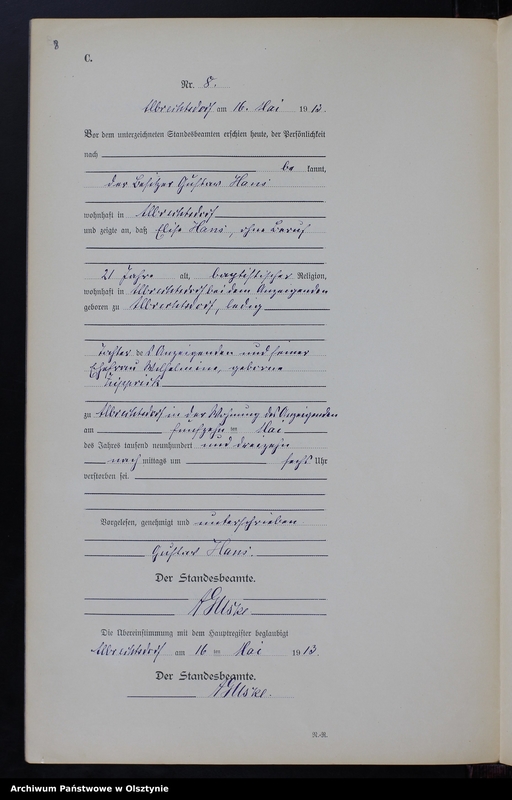 8
C.
Nr. 8.
Albrechtsdorf am 16. Mai 1913.
Vor dem unterzeichneten Standesbeamten erschien heute, der Persönlichkeit
nach
be kannt,
der Besitzer Gustav Hans
wohnhaft in Albrechtsdorf
und zeigte an, daß Elise Hans, ohne Beruf
21 Jahre alt, baptistischer Religion,
wohnhaft in Albrechtsdorf bei dem Anzeigenden
geboren zu Albrechtsdorf, ledig
Tochter des Anzeigenden und seiner
Ehefrau Wilhelmine, geborne
zu Albrechtsdorf in der Wohnung des Anzeigenden
am fünfzehn ten Mai
des Jahres tausend neunhundert und dreizehn
nach mittags um sechs Uhr
verstorben sei.
Vorgelesen, genehmigt und unterschrieben
Gustav Hans.
Der Standesbeamte.
Die Übereinstimmung mit dem Hauptregister beglaubigt
Albrechtsdorf am 16 ten Mai 1913.
Der Standesbeamte.
R.-R.
Archiwum Państwowe w Olsztynie